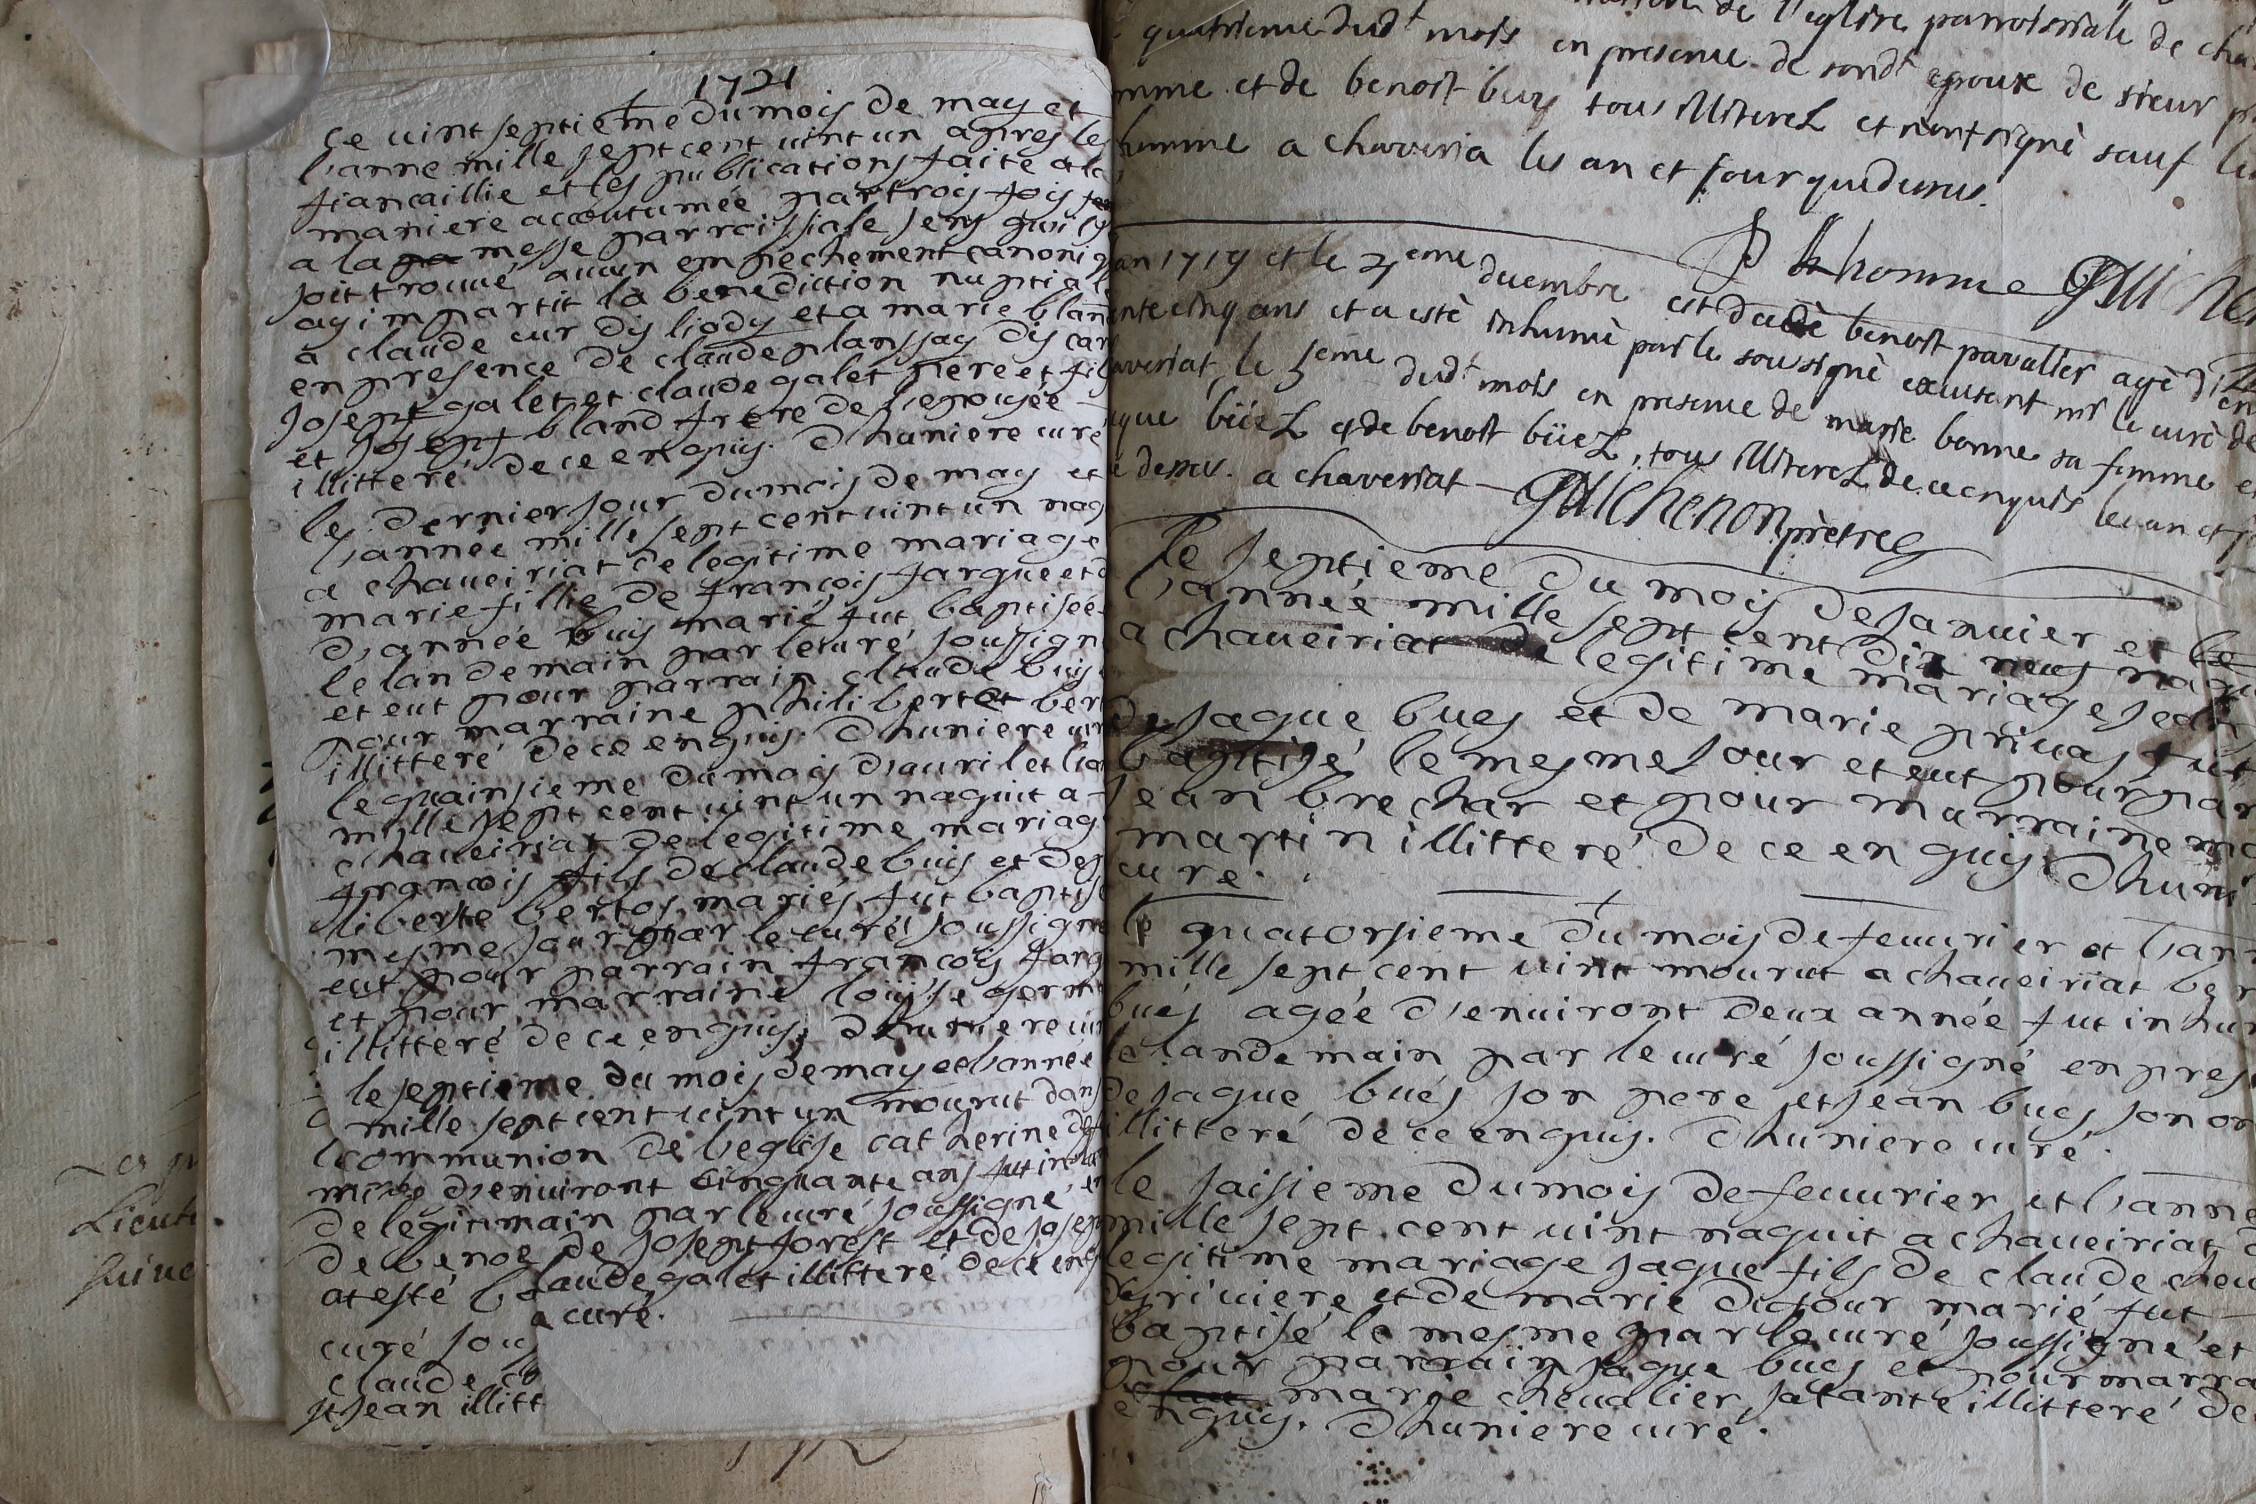 1721
ce vint septieme du mois de may et
l'anne mille sept cent vint un apres les
fiancaillie et les publications faite a la
maniere accoutumée par trois fois
a la messe parroissiale sens qui
soit trouué aucun empechement canoni
ay impartit la benediction nuptial
a claude cur dis liody et a marie bland
en presence de claude planssay dis
josept galet et claude galet pere et fils
et josept bland frere de l'epousée
illitteré de ce enquis. Dhuniere curé
le dernier jour du mois de may et
l'année mille sept cent vint un naq
a chaueiriat de legitime mariage
marie fillie de françois fargue et d
d'année buis marié fut baptisée
le landemain par le curé soussign
et eut pour parrain claude buis
pour marraine philibertet ber
illitteré de ce enquis. Dhuniere cur
le quainsieme du mois d'auril et l'an
mille sept cent vint un naquit a
chaueiriat de legitime mariag
françois fils de claude buis et de p
liberte bertos mariés fut baptisé
mesme jour par le curé soussigné
eut pour parrain françois farg
et pour marraine loüise germ
illitteré de ce enquis, Dhuniere cur
le septieme du mois de may et l'année
mille sept cent vint un mourut dans
communion de l'eglise catherine
d'enuiront cinquante ans fut in
par le curé soussigné en
de josept forest et de josep
laude galet illitteré de ce enq
curé.
de legiti
de benoi
a testé
curé sou
claude
et jean illitt
de l'eglise parroissiale de cha
quatrieme dudt mois en presence de sondt epoux de sieur
mme et de benoit buis tous illiterez et n'ont signè sauf le
homme a chaveria les an et jour que dessus.
P Lhomme Guichenon
an 1719 et le 4eme decembre est decedè benoit pavallier agè d'en
nte cinq ans et a estè inhumè par le soussignè excusant mr le curè de
averiat, le 5eme dudt mois en presence de marie bonne sa femme e
que büez et de benoit büez, tous illiterez de ce enquis les an et j
dessus. a chaveriat Guichenon prètre
le septieme du mois de januier et le
l'année mille sept cent dix neuf naqu
a chaueiriat de legitime mariage jean
de jaque bues et de marie priuas fut
baptisé le mesme jour et eut pour par
jean brechar et pour marraine ma
martin illitteré de ce enquis Dhuni
cure.
le quatorsieme du mois de feuurier et l'ann
mille sept cent vint mourut a chaueiriat ber
bués agée d'enuiront deux année fut inhum
le landemain par le curé soussigné en pres
de jaque bués son pere et jean bues son on
illitteré de ce enquis. Dhuniere curé.
le saisieme du mois de feuurier et l'anne
mille sept cent vint naquit a chaueiriat d
legitime mariage jaque fils de claude cheu
riuiere et de marie dufour marié fut
baptisé le mesme par le curé soussigné et
pour parrain jaque bues et pour marra
marie cheualier sa tante illitteré de
enquis. Dhuniere curé.
Lieute